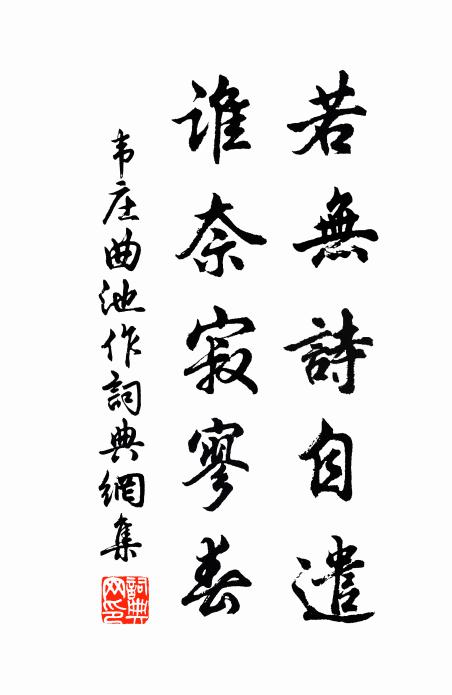 若無詩自遣
誰奈寂寥春
韦庄曲池作詞典網集
詞典网印